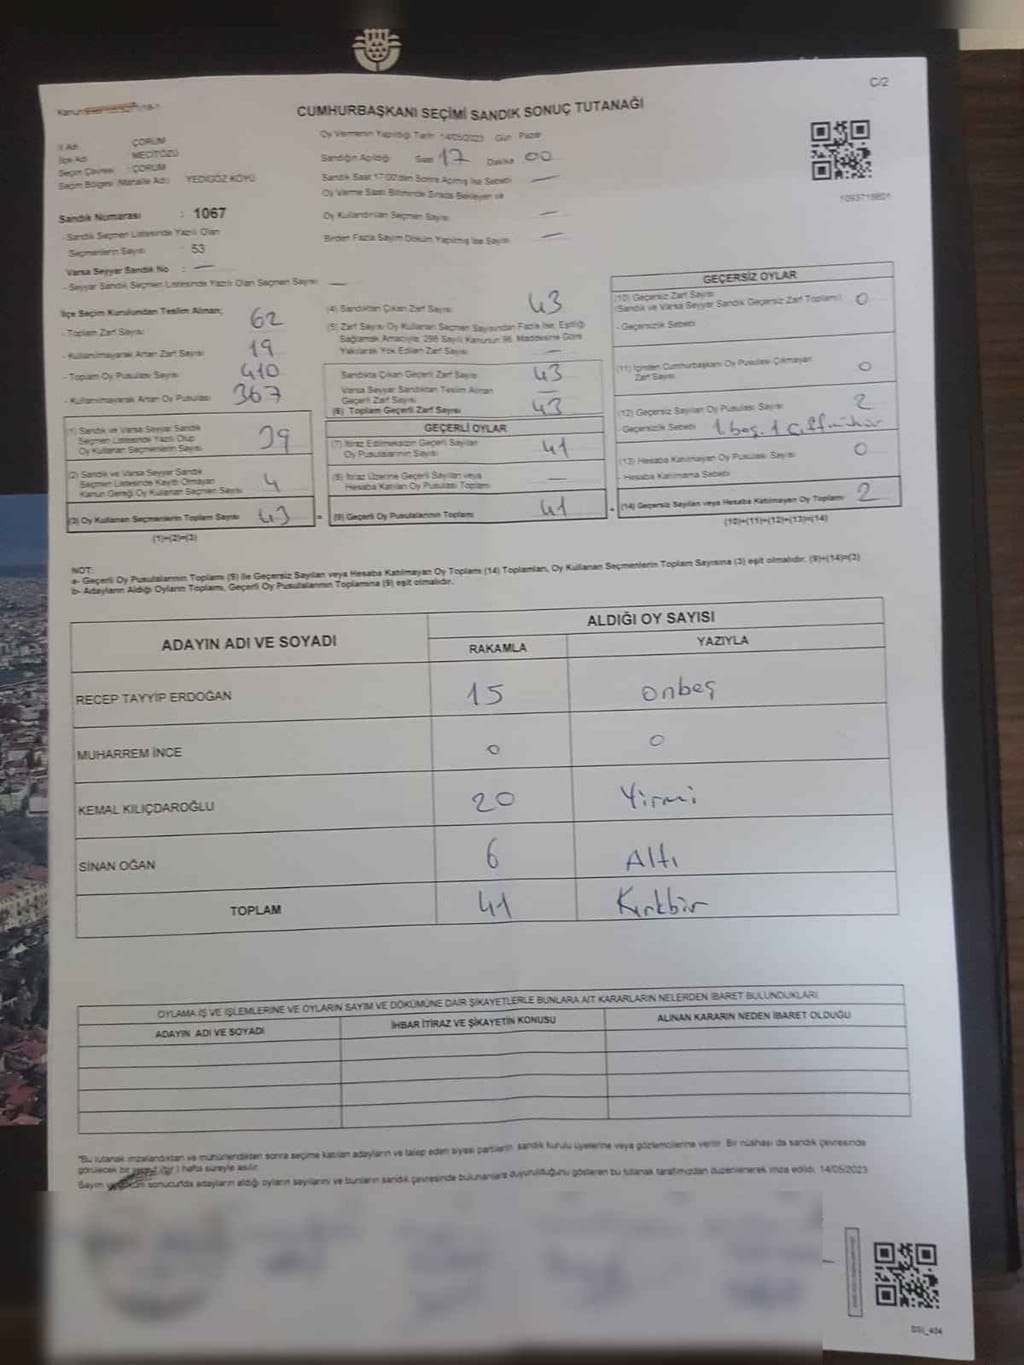 C/2
CUMHURBAŞKANI SEÇİMİ SANDIK SONUÇ TUTANAĞI
İl Adı : ÇORUM
İlçe Adı : MECİTÖZÜ
Seçim Çevresi : ÇORUM
Seçim Bölgesi (Mahalle Adı) YEDİGÖZ KÖYÜ
Oy Vermenin Yapıldığı Tarih 14/05/2023 Gün Pazar
Sandığın Açıldığı Saat 17 Dakika 00
Sandık Saat 17:00'den Sonra Açılmış İse Sebebi —
Oy Verme Saati Bitiminde Sırada Bekleyen ve
Oy Kullandırılan Seçmen Sayısı —
Birden Fazla Sayım Döküm Yapılmış İse Sayısı —
1093719801
Sandık Numarası : 1067
- Sandık Seçmen Listesinde Yazılı Olan
Seçmenlerin Sayısı : 53
Varsa Seyyar Sandık No : —
- Seyyar Sandık Seçmen Listesinde Yazılı Olan Seçmen Sayısı —
İlçe Seçim Kurulundan Teslim Alınan;
- Toplam Zarf Sayısı 62
- Kullanılmayarak Artan Zarf Sayısı 19
- Toplam Oy Pusulası Sayısı 410
- Kullanılmayarak Artan Oy Pusulası 367
(1) Sandık ve Varsa Seyyar Sandık
Seçmen Listesinde Yazılı Olup
Oy Kullanan Seçmenlerin Sayısı 39
(2) Sandık ve Varsa Seyyar Sandık
Seçmen Listesinde Kayıtlı Olmayan
Kanun Gereği Oy Kullanan Seçmen Sayısı 4
(3) Oy Kullanan Seçmenlerin Toplam Sayısı 43
(1)+(2)=(3)
(4) Sandıktan Çıkan Zarf Sayısı 43
(5) Zarf Sayısı Oy Kullanan Seçmen Sayısından Fazla İse, Eşitliği
Sağlamak Amacıyla, 298 Sayılı Kanunun 98. Maddesine Göre
Yakılarak Yok Edilen Zarf Sayısı —
Sandıkta Çıkan Geçerli Zarf Sayısı 43
Varsa Seyyar Sandıktan Teslim Alınan
Geçerli Zarf Sayısı —
(6) Toplam Geçerli Zarf Sayısı 43
GEÇERLİ OYLAR
(7) İtiraz Edilmeksizin Geçerli Sayılan
Oy Pusulalarının Sayısı 41
(8) İtiraz Üzerine Geçerli Sayılan veya
Hesaba Katılan Oy Pusulası Toplamı —
= (9) Geçerli Oy Pusulalarının Toplamı 41
GEÇERSİZ OYLAR
(10) Geçersiz Zarf Sayısı
(Sandık ve Varsa Seyyar Sandık Geçersiz Zarf Toplamı) 0
- Geçersizlik Sebebi
(11) İçinden Cumhurbaşkanı Oy Pusulası Çıkmayan
Zarf Sayısı 0
(12) Geçersiz Sayılan Oy Pusulası Sayısı 2
- Geçersizlik Sebebi 1 boş. 1 çift mühür
(13) Hesaba Katılmayan Oy Pusulası Sayısı 0
- Hesaba Katılmama Sebebi
+ (14) Geçersiz Sayılan veya Hesaba Katılmayan Oy Toplamı 2
(10)+(11)+(12)+(13)=(14)
NOT:
a- Geçerli Oy Pusulalarının Toplamı (9) ile Geçersiz Sayılan veya Hesaba Katılmayan Oy Toplamı (14) Toplamları, Oy Kullanan Seçmenlerin Toplam Sayısına (3) eşit olmalıdır. (9)+(14)=(3)
b- Adayların Aldığı Oyların Toplamı, Geçerli Oy Pusulalarının Toplamına (9) eşit olmalıdır.
ADAYIN ADI VE SOYADI
ALDIĞI OY SAYISI
RAKAMLA YAZIYLA
RECEP TAYYİP ERDOĞAN 15 onbeş
MUHARREM İNCE 0 0
KEMAL KILIÇDAROĞLU 20 Yirmi
SİNAN OĞAN 6 Altı
TOPLAM 41 Kırkbir
OYLAMA İŞ VE İŞLEMLERİNE VE OYLARIN SAYIM VE DÖKÜMÜNE DAİR ŞİKAYETLERLE BUNLARA AİT KARARLARIN NELERDEN İBARET BULUNDUKLARI
ADAYIN ADI VE SOYADI İHBAR İTİRAZ VE ŞİKAYETİN KONUSU ALINAN KARARIN NEDEN İBARET OLDUĞU
*Bu tutanak imzalandıktan ve mühürlendikten sonra seçime katılan adayların ve talep eden siyasi partilerin, sandık kurulu üyelerine veya gözlemcilerine verilir. Bir nüshası da sandık çevresinde
görülecek bir yere 1 (bir) hafta süreyle asılır.
Sayım sonucunda adayların aldığı oyların sayılarını ve bunların sandık çevresinde bulunanlara duyurulduğunu gösteren bu tutanak tarafımızdan düzenlenerek imza edildi. 14/05/2023